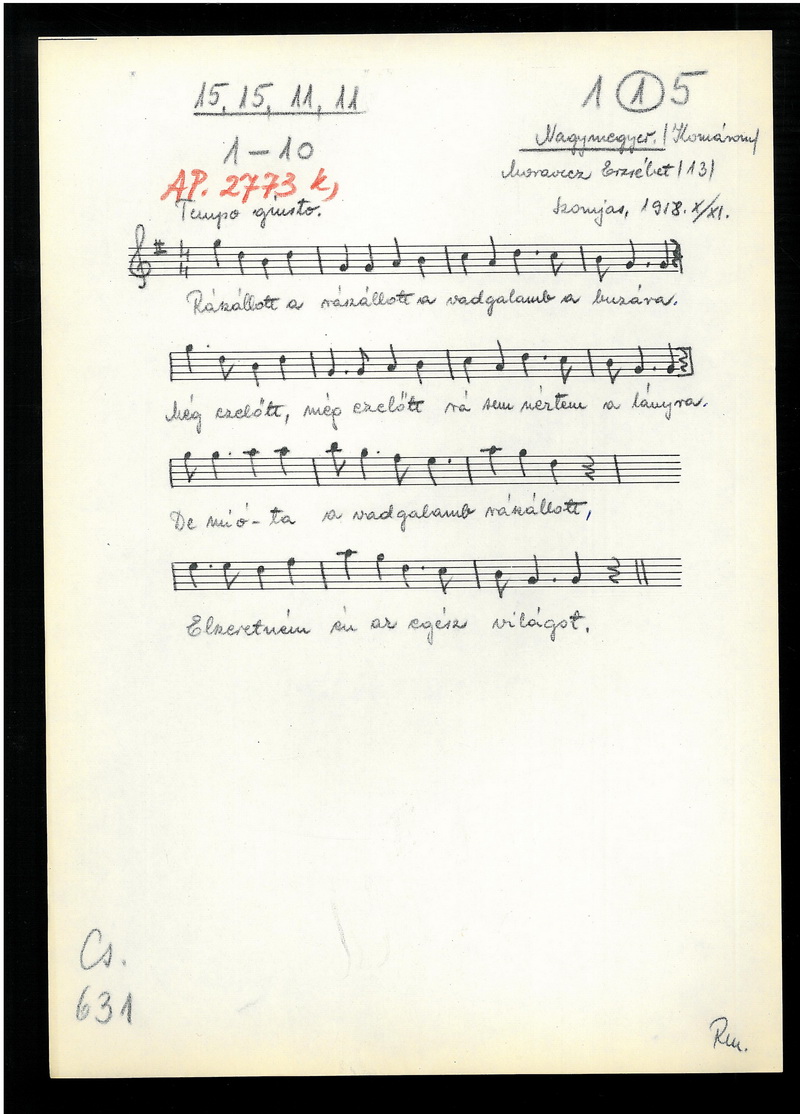 15, 15, 11, 11
1 1 5
1-10
Nagymegyer. /Komárom/
AP. 2773 k,
Moravecz Erzsébet /13/
Tempo giusto.
Szomjas, 1918. X/XI.
Rászállott a rászállott a vadgalamb a buzára.
Még ezelőtt, még ezelőtt rá sem néztem a lányra.
De mió-ta a vadgalamb rászállott,
Elszeretném én az egész világot.
Cs.
631
Rm.